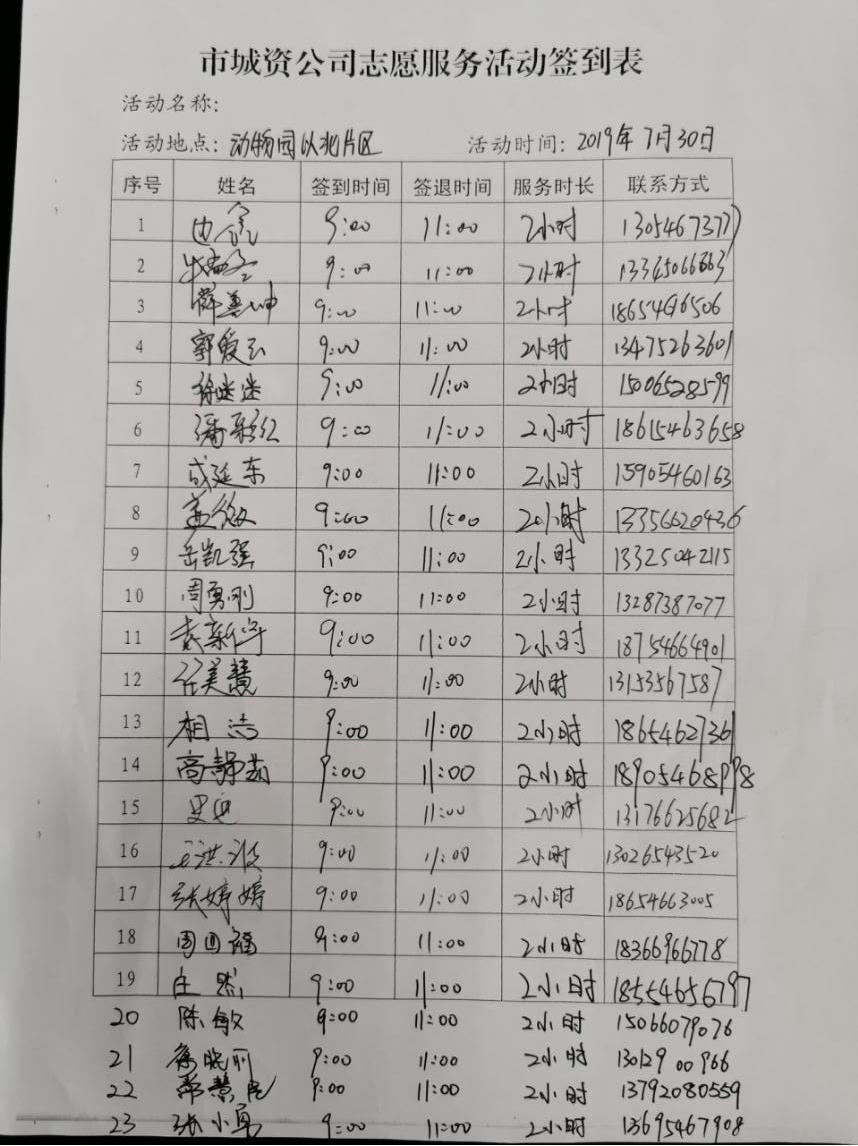 市城资公司志愿服务活动签到表
活动名称：
活动地点：动物园以北片区 活动时间：2019年7月30日
序号 姓名 签到时间 签退时间 服务时长 联系方式
1 9:00 11:00 2小时
2 9:00 11:00 2小时
3 薛善坤 9:00 11:00 2小时
4 郭爱云 9:00 11:00 2小时 13475263601
5 徐迷迷 9:00 11:00 2小时 15006528599
6 潘彩红 9:00 11:00 2小时 18615463658
7 成延东 9:00 11:00 2小时 15905460163
8 9:00 11:00 2小时 13356620436
9 岳凯强 9:00 11:00 2小时 13325042115
10 周勇刚 9:00 11:00 2小时 13287387077
11 袁新华 9:00 11:00 2小时 18754664901
12 任美慧 9:00 11:00 2小时 13153567587
13 相洁 9:00 11:00 2小时 18654627361
14 高静茹 9:00 11:00 2小时 18905468998
15 9:00 11:00 2小时 13176625682
16 王洪波 9:00 11:00 2小时 13026543520
17 张婷婷 9:00 11:00 2小时 18654663005
18 9:00 11:00 2小时 18366966778
19 任然 9:00 11:00 2小时 18554656797
20 陈敏 9:00 11:00 2小时 15066079076
21 9:00 11:00 2小时 13012900966
22 9:00 11:00 2小时 13792080559
23 张小勇 9:00 11:00 2小时 13695467908